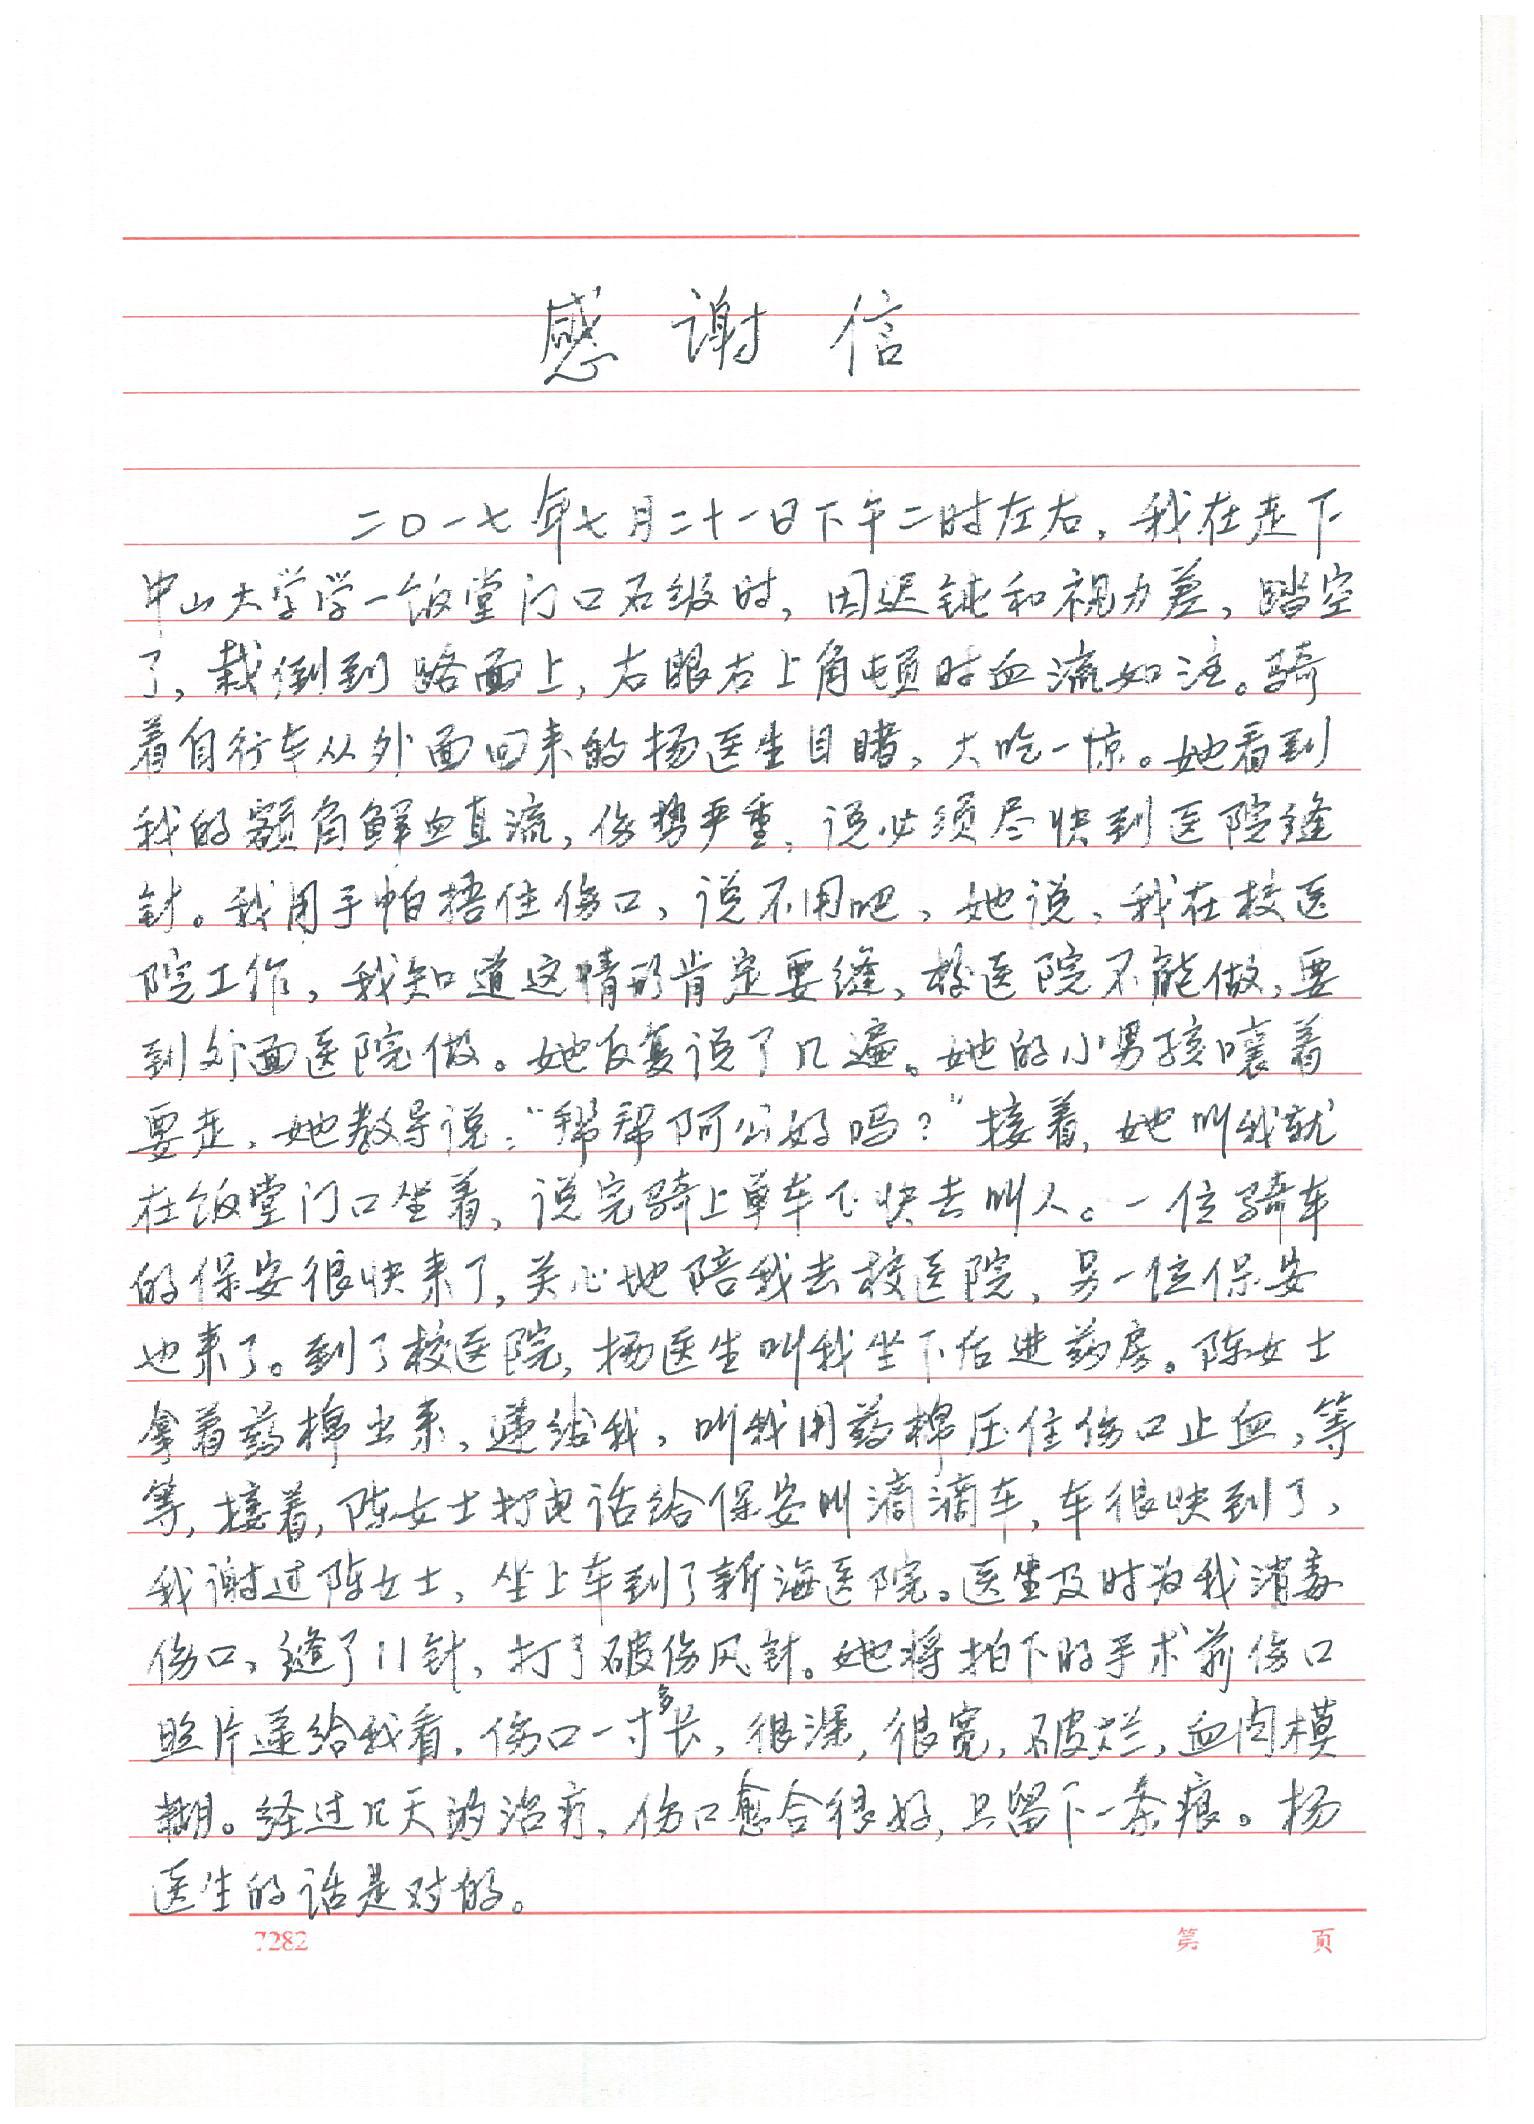 感谢信
二〇一七年七月二十一日下午二时左右，我在走下
中山大学学一饭堂门口石级时，因迟钝和视力差，踏空
了，栽倒到路面上，右眼右上角顿时血流如注。骑
着自行车从外面回来的杨医生目睹，大吃一惊。她看到
我的额角鲜血直流，伤势严重，说必须尽快到医院缝
针。我用手帕捂住伤口，说不用吧，她说，我在校医
院工作，我知道这情形肯定要缝，校医院不能做，要
到外面医院做。她反复说了几遍。她的小男孩嚷着
要走，她教导说：“帮帮阿公好吗？”接着，她叫我就
在饭堂门口坐着，说完骑上单车飞快去叫人。一位骑车
的保安很快来了，关心地陪我去校医院，另一位保安
也来了。到了校医院，杨医生叫我坐下后进药房。陈女士
拿着药棉出来，递给我，叫我用药棉压住伤口止血，等
等，接着，陈女士打电话给保安叫滴滴车，车很快到了，
我谢过陈女士，坐上车到了新海医院。医生及时为我消毒
伤口，缝了11针，打了破伤风针。她将拍下的手术前伤口
照片递给我看，伤口一寸多长，很深，很宽，破烂，血肉模
糊。经过几天的治疗，伤口愈合很好，只留下一条痕。杨
医生的话是对的。
7282 第 页